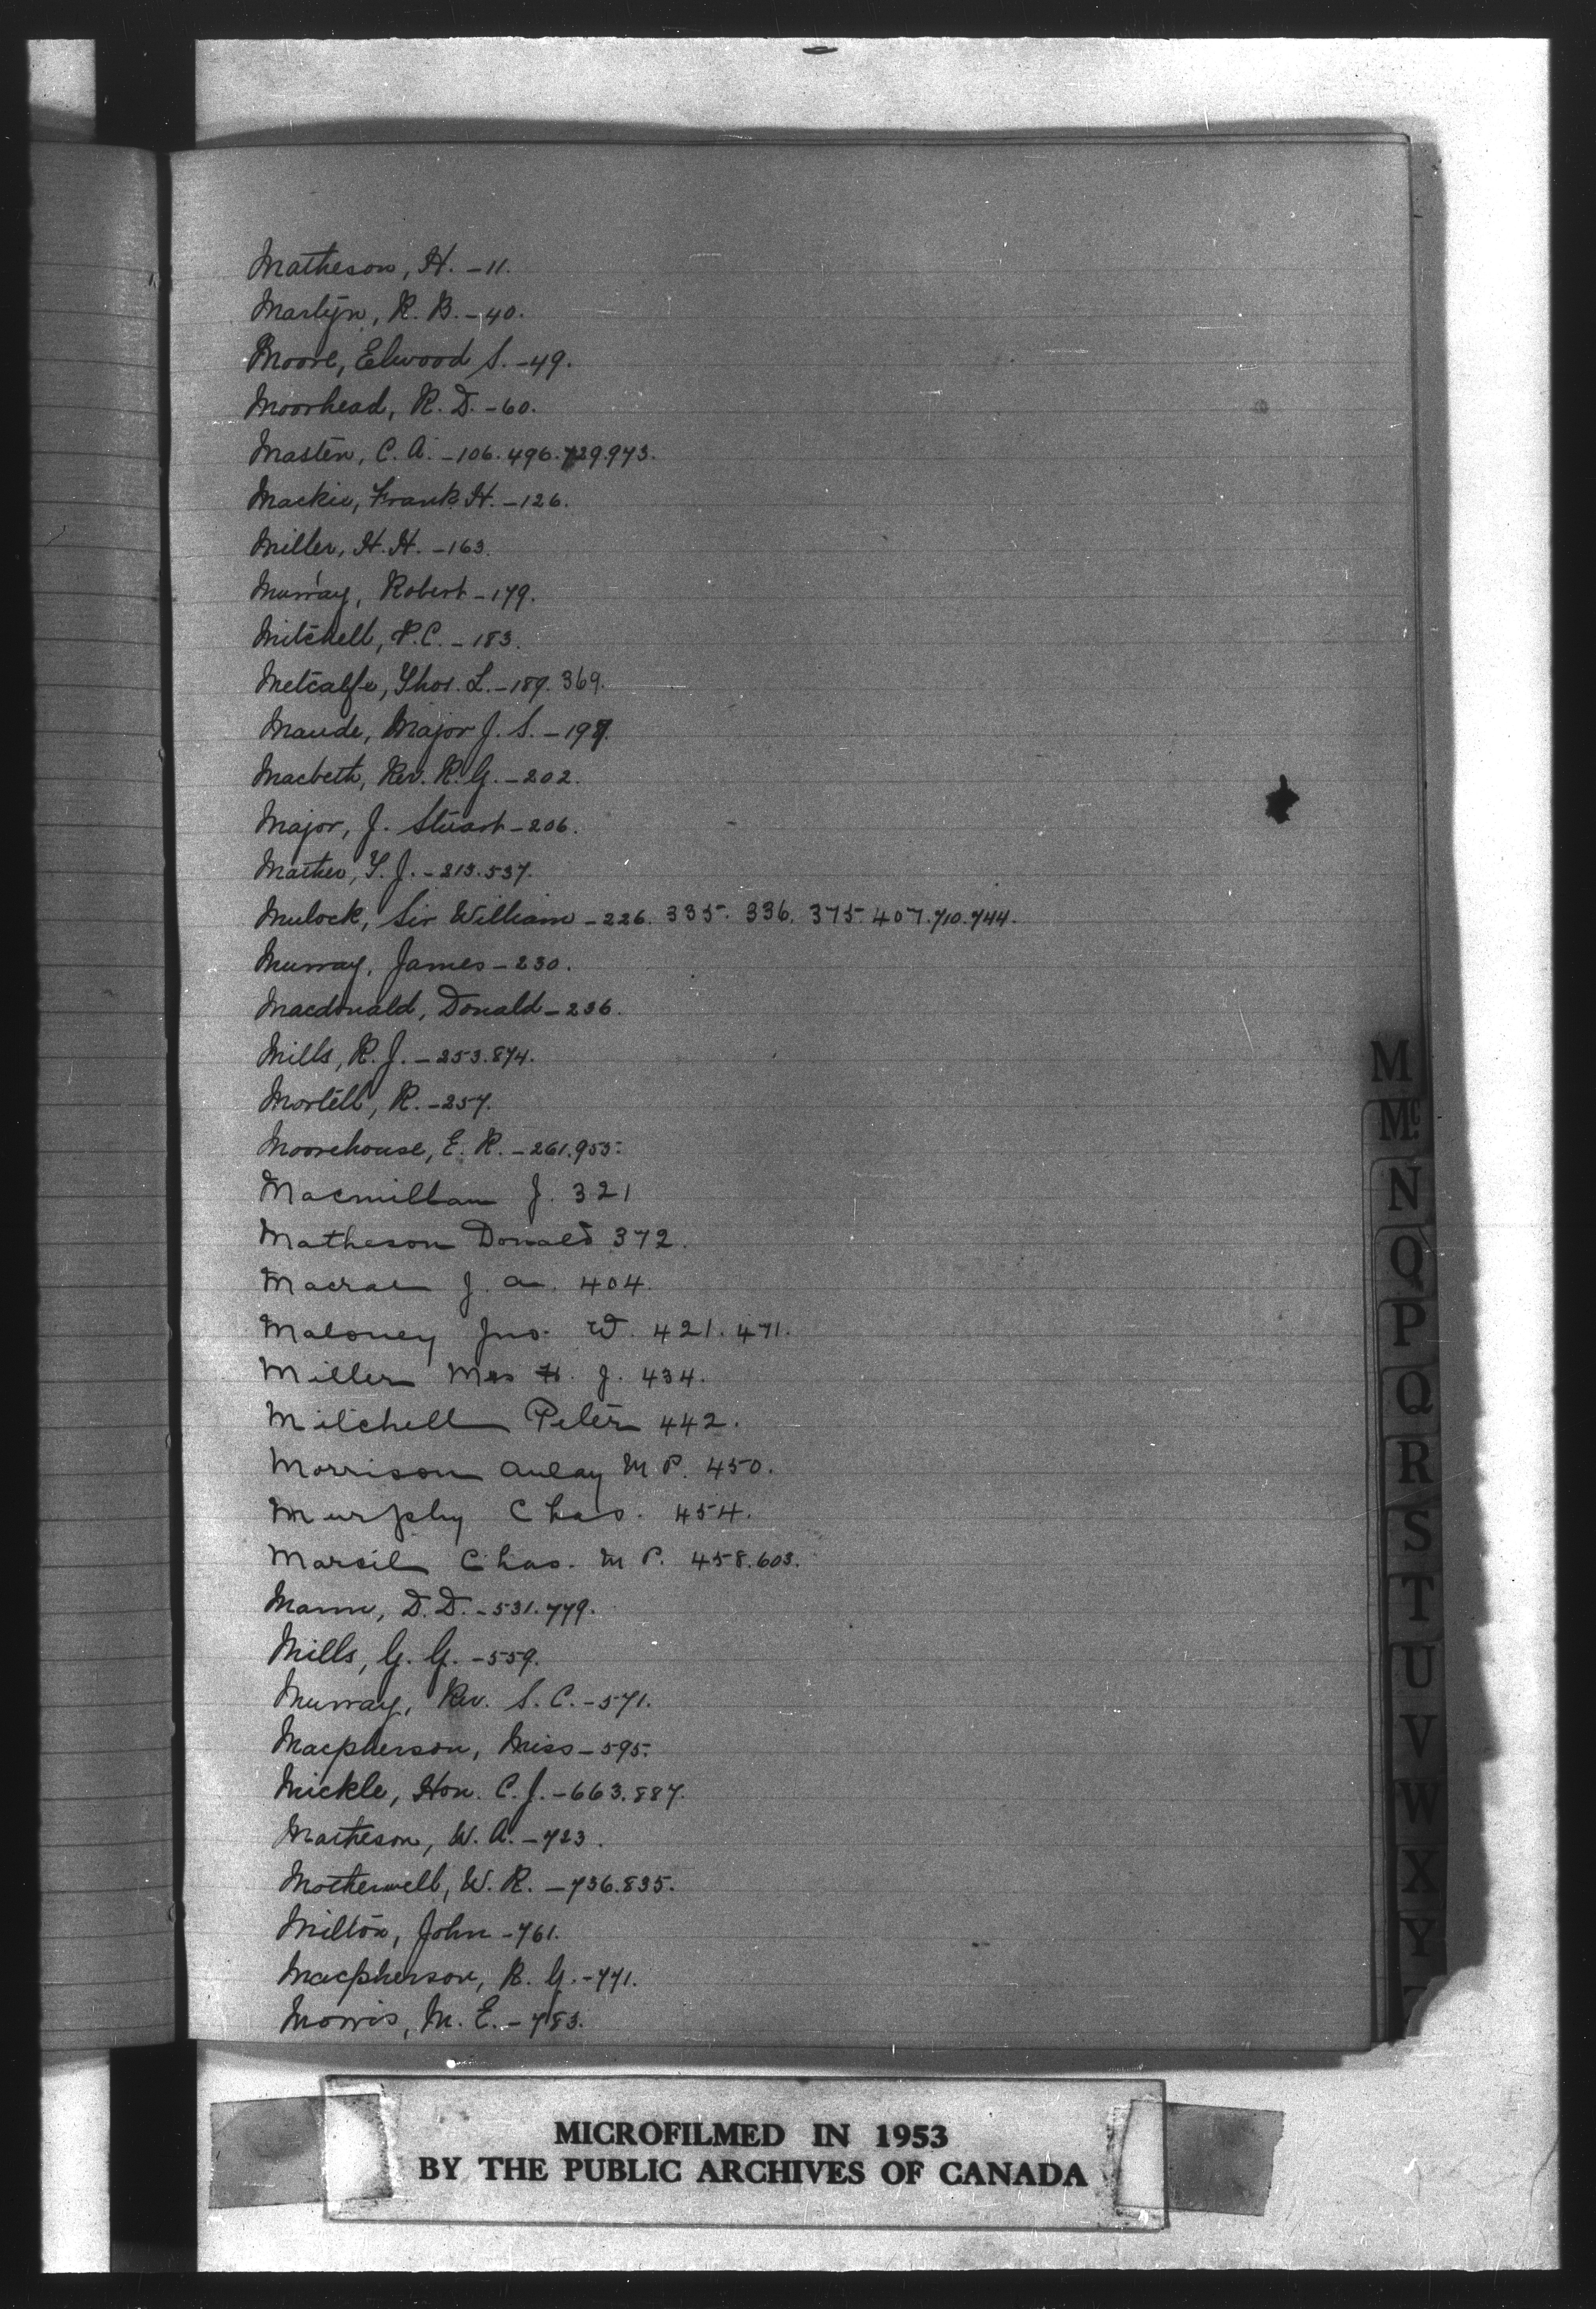 Matheson, H. - 11.
Martyn, R. B. - 40.
Moore, Elwood S. - 49.
Moorhead, R. D. - 60.
Masten, C. A. - 106. 496. 729. 973.
Mackie, Frank H. - 126.
Miller, H. H. - 163.
Murray, Robert - 179.
Mitchell, P. C. - 183.
Metcalfe, Thos. L. - 189. 369.
Maude, Major J. S. - 197.
Macbeth, Rev. R. G. - 202.
Major, J. Stuart - 206.
Mather, T. J. - 213. 537.
Mulock, Sir William - 226. 335. 336. 375. 407. 710. 744.
Murray, James - 230.
Macdonald, Donald - 236.
Mills, R. J. - 253. 874.
Mortell, R. - 257.
Moorehouse, E. R. - 261. 955.
Macmillan J. 321
Matheson Donald 372.
Macrae J. A. 404.
Maloney Jno. W. 421. 471.
Miller Mrs H. J. 434.
Mitchell Peter 442.
Morrison Aulay M P. 450.
Murphy Chas. 454.
Marcil Chas. M P. 458. 603.
Mann, D. D. - 531. 779.
Mills, G. G. - 559.
Murray, Rev. S. C. - 571.
Macpherson, Miss - 595.
Mickle, Hon. C. J. - 663. 887.
Matheson, W. A. - 723.
Motherwell, W. R. - 736. 835.
Milton, John - 761.
Macpherson, R. G. - 771.
Morris, M. E. - 783.
M
Mc
N
O
P
Q
R
S
T
U
V
W
X
Y
MICROFILMED IN 1953
BY THE PUBLIC ARCHIVES OF CANADA